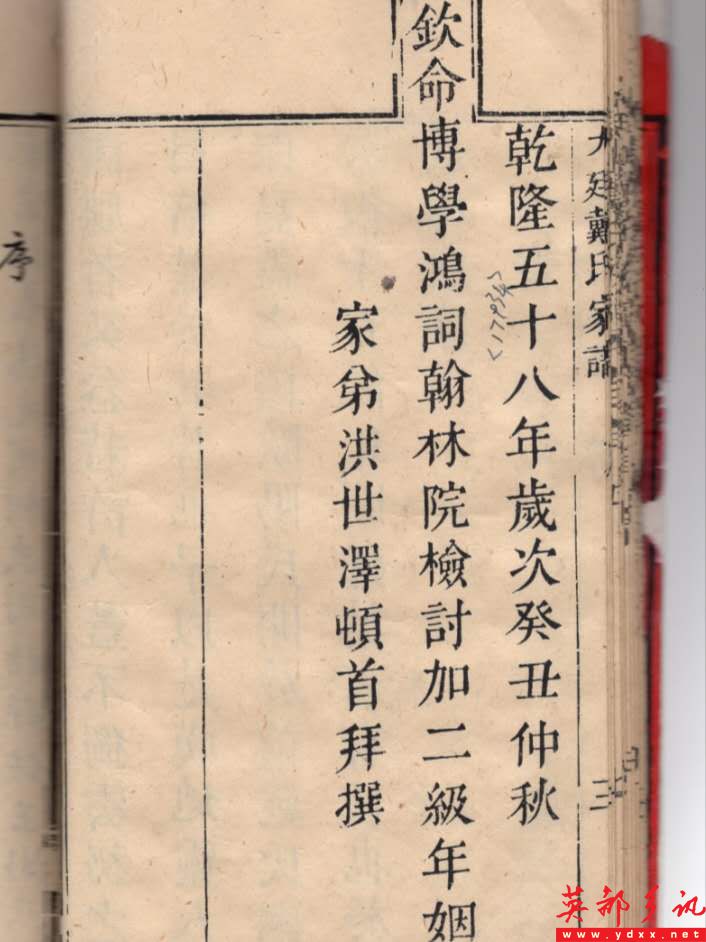 大廷戴氏家譜
三
乾隆五十八年歲次癸丑仲秋
<1793年>
欽命博學鴻詞翰林院檢討加二級年姻
家弟洪世澤頓首拜撰
序
英都乡讯
www.ydxx.net